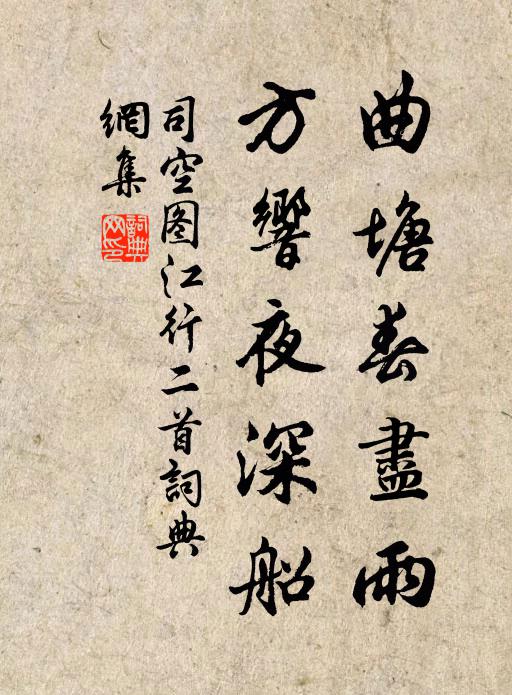 曲塘春盡雨
方響夜深船
司空图江行二首詞典
網集
詞典网印